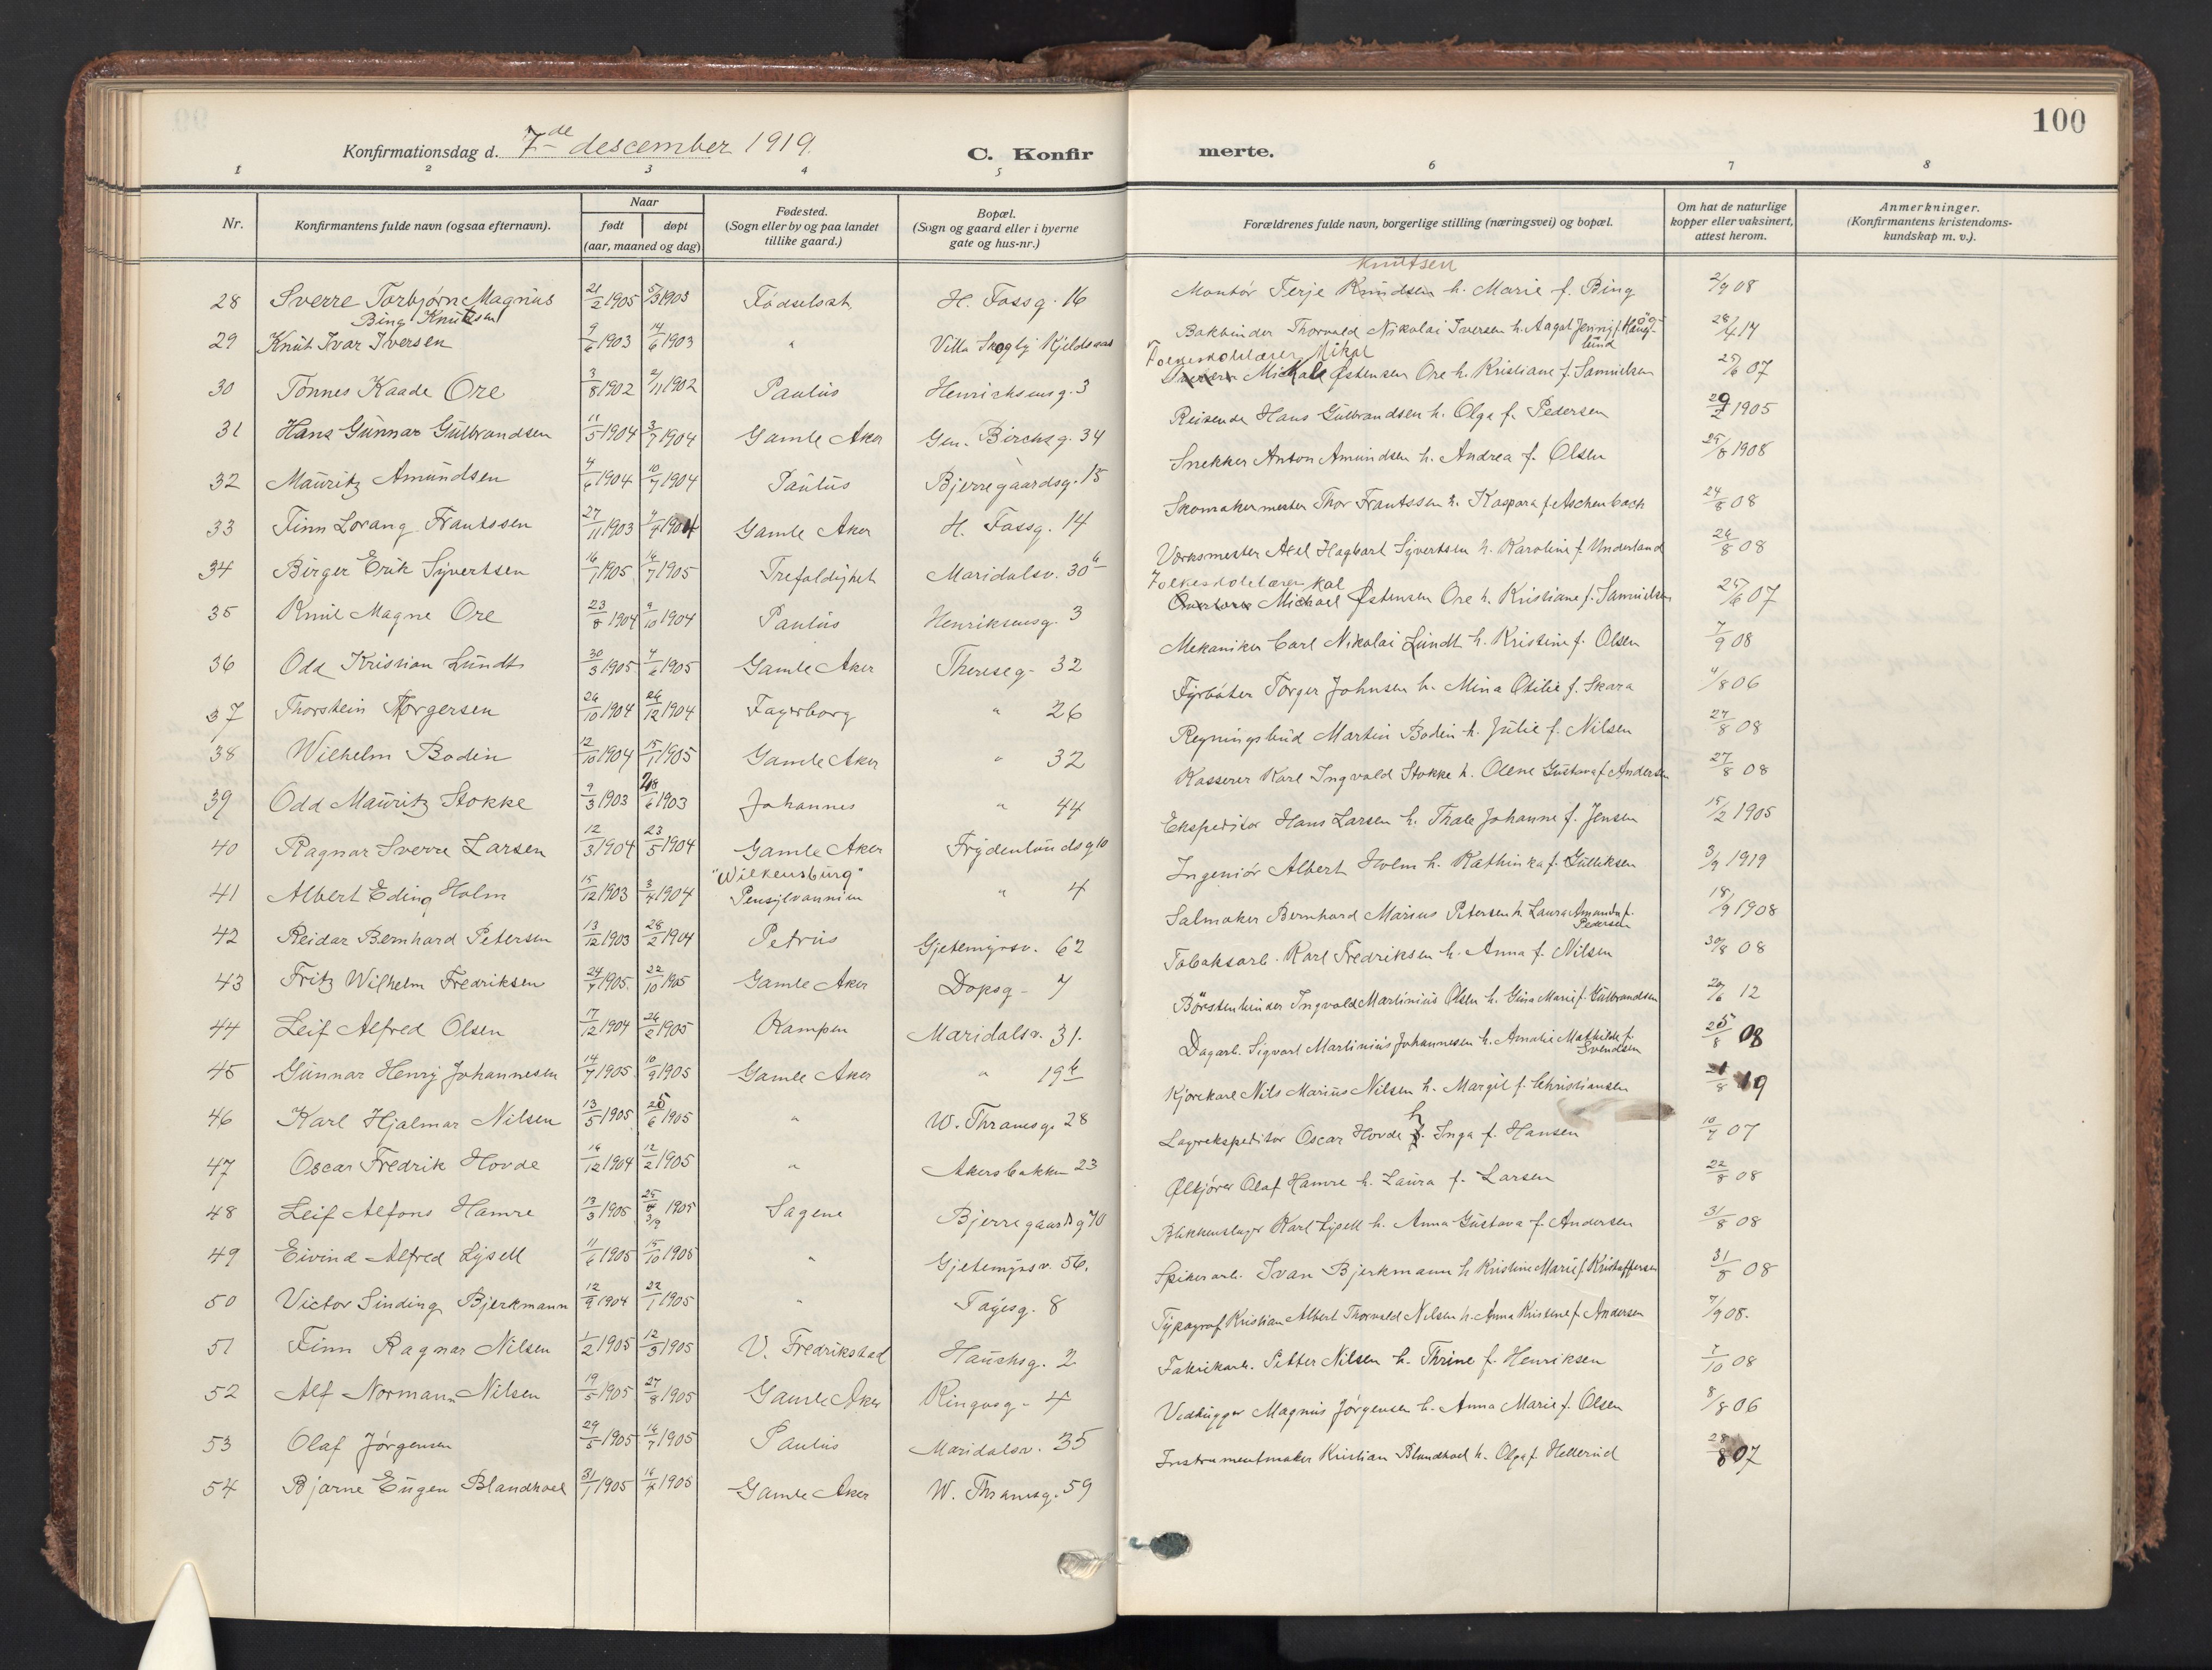 100
Konfirmationsdag d. 7de desember 1919.
C. Konfirmerte.
1 2 3 4 5 6 7 8
Nr.
Konfirmantens fulde navn (ogsaa efternavn).
Naar
født
døpt
(aar, maaned og dag)
Fødested.
(Sogn eller by og paa landet
tillike gaard.)
Bopæl.
(Sogn og gaard eller i byerne
gate og hus-nr.)
Forældrenes fulde navn, borgerlige stilling (næringsvei) og bopæl.
Om hat de naturlige
kopper eller vaksinert,
attest herom.
Anmerkninger.
(Konfirmantens kristendoms-
kundskap m. v.).
Knutsen
28 Sverre Torbjørn Magnus 21/2 1905 Fødselsat. H. Fossg. 16 Montør Terje Knudsen h. Marie f. Bing 2/9 08
Bing Knutsen
29 Knut Ivar Iversen 9/6 1903 14/6 1903 " Villa Skogly Kjeldsaas Bokbinder Thorvald Nikolai Iversen h. Aagot Jenny f. 28/4 14
lund
Folkeskolelærer Mikal
30 Tønnes Kaade Ore 3/8 1902 2/11 1902 Paulus Henrichsensg. 3 Michale Østensen Ore h. Kristiane f. Samuelsen 25/6 07
31 Hans Gunnar Gulbrandsen 11/5 1904 3/7 1904 Gamle Aker Gen. Birchsg. 34 Reisende Hans Gulbrandsen h. Olga f. Pedersen 29/2 1905
32 Mauritz Amundsen 4/6 1904 10/7 1904 Paulus Bjerregaardsg. 15 Snekker Anton Amundsen h. Andrea f. Olsen 25/8 1908
33 Finn Lorang Frantssen 27/11 1903 4/4 1904 Gamle Aker H. Fossg. 14 Skomakermester Thor Frantssen h. Kaspara f. Aschenbach 24/8 08
34 Birger Erik Syvertsen 16/1 1905 16/7 1905 Trefoldighet Maridalsv. 30 b Værksmester Axel Hagbart Syvertsen h. Karoline f. Underland 26/8 08
Folkeskolelærer kal
35 Knut Magne Ore 23/8 1904 9/10 1904 Paulus Henriksensg. 3 Michael Østensen Ore h. Kristiane f. Samuelsen 25/6 07
36 Odd Kristian Lundt 30/3 1905 4/6 1905 Gamle Aker Thereseg. 32 Mekaniker Carl Nikolai Lundt h. Kristine f. Olsen 7/9 08
37 Thorstein Torgersen 26/10 1904 26/12 1904 Fagerborg " 26 Fyrbøter Torger Johnsen h. Mina Otilie f. Skara 4/8 06
38 Wilhelm Bodin 12/10 1904 15/1 1905 Gamle Aker " 32 Regningsbud Martin Bodin h. Julie f. Nilsen 27/8 08
39 Odd Mauritz Stokke 9/3 1903 28/6 1903 Johannes " 44 Kasserer Karl Ingvald Stokke h. Olene Gustava f. Andersen 27/8 08
40 Ragnar Sverre Larsen 12/3 1904 23/5 1904 Gamle Aker Frydenlundsg 10 Ekspeditor Hans Larsen h. Thale Johanne f. Jensen 15/2 1905
"Wilkensburg"
41 Albert Eding Holm 15/12 1903 3/4 1904 Pensylvannien " 4 Ingeniør Albert Holm h. Kathinka f. Gulliksen 3/9 1919
42 Reidar Bernhard Petersen 13/12 1903 28/2 1904 Petrus Gjetemyrsv. 62 Salmaker Bernhard Marius Petersen h. Laura Amanda f. 18/9 1908
Pedersen
43 Fritz Wilhelm Fredriksen 24/7 1905 22/10 1905 Gamle Aker Dopsg. 7 Tobaksarb. Karl Fredriksen h. Anna f. Nilsen 30/8 08
44 Leif Alfred Olsen 17/12 1904 26/2 1905 Kampen Maridalsv. 31. Børstenbinder Ingvald Martinius Olsen h. Gina Marie f. Gulbrandsen 20/6 12
45 Gunnar Henry Johannesen 14/7 1905 10/9 1905 Gamle Aker " 19 b Dagarb. Sigvart Martinius Johannesen h. Amalie Mathilde f. 25/8 08
Svendsen
46 Karl Hjalmar Nilsen 13/5 1905 25/6 1905 " W. Thranesg. 28 Kjørekarl Nils Marius Nilsen h. Margit f. Christiansen 21/8 19
47 Oscar Fredrik Hovde 16/12 1904 12/2 1905 " Akersbakken 23 Lagerekspeditor Oscar Hovde h. Inga f. Hansen 10/7 07
48 Leif Alfons Hamre 13/3 1905 1905 Sagene Bjerregaardsg 70 Ølkjører Olaf Hamre h. Laura f. Larsen 22/8 08
49 Eivind Alfred Lysell 11/6 1905 15/10 1905 " Gjetemyrsv. 56. Blikkenslager Karl Lysell h. Anna Gustava f. Andersen 31/8 08
50 Victor Sinding Bjerkmann 12/9 1904 22/1 1905 " Fayesg. 8 Spikerarb. Ivan Bjerkmann h. Kristine Marie f. Kristoffersen 31/8 08
51 Finn Ragnar Nilsen 1/2 1905 12/3 1905 V. Fredrikstad Hauchsg. 2 Typograf Kristian Albert Thorvald Nilsen h. Anna Kristene f. Andersen 7/9 08.
52 Alf Normann Nilsen 19/5 1905 27/8 1905 Gamle Aker Ringvsg. 4 Fabrikarb. Petter Nilsen h. Thrine f. Henriksen 7/10 08
53 Olaf Jørgensen 29/5 1905 16/7 1905 Paulus Maridalsv. 35 Vedhugger Magnus Jørgensen h. Anna Marie f. Olsen 8/8 06
54 Bjarne Eugen Blandhoel 31/1 1905 1905 Gamle Aker W. Thranesg. 59 Instrumentmaker Kristian Blandhoel h. Olga f. Hellerud 28/8 07